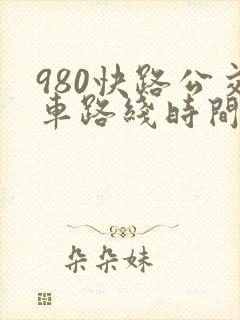 980快路公交
車路綫時間
朵朵妹